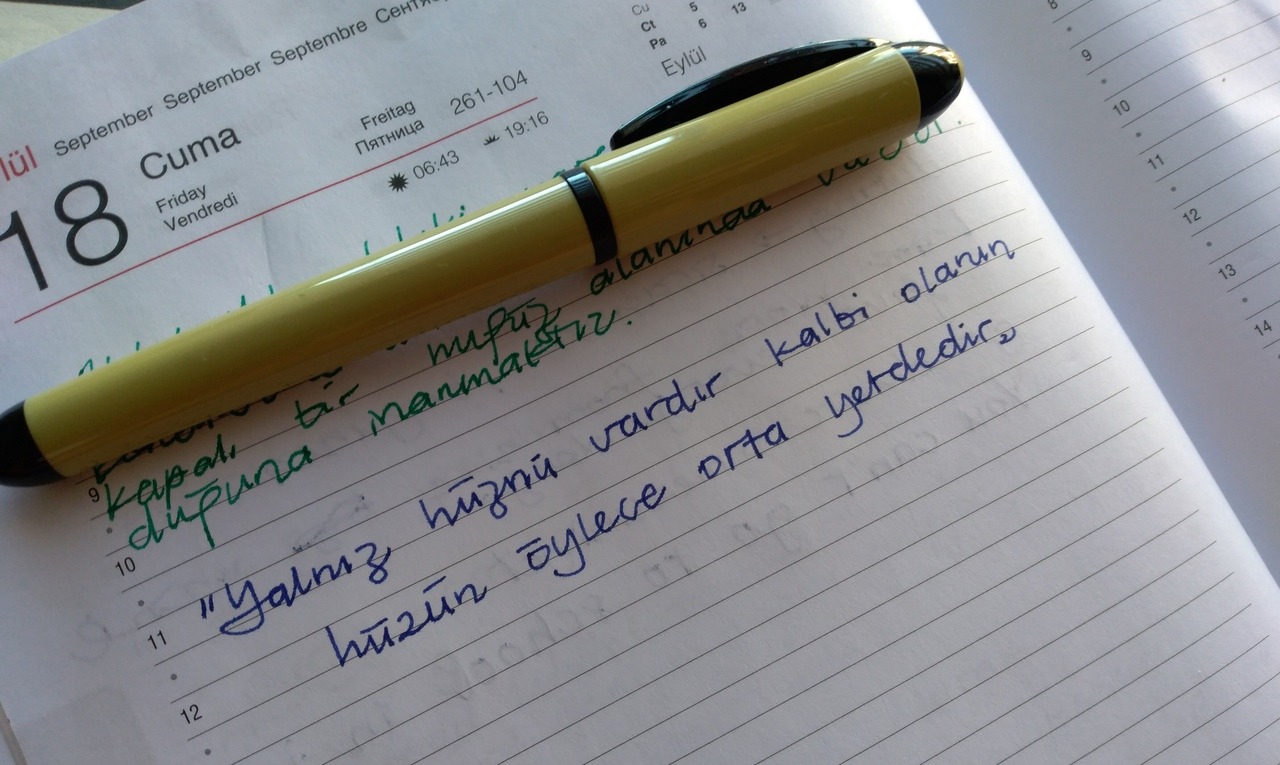 September September Septembre
Cu 5
Ct 6 13
Pa
Eylül
18 Cuma
Friday
Vendredi
Freitag 261-104
Пятница
06:43 19:16
nüfuz alanında
kapalı bir
duğuna inanmaktır.
"Yalnız hüznü vardır kalbi olanın
hüzün öylece orta yerdedir„
9
10
11
12
8
9
10
11
12
13
14